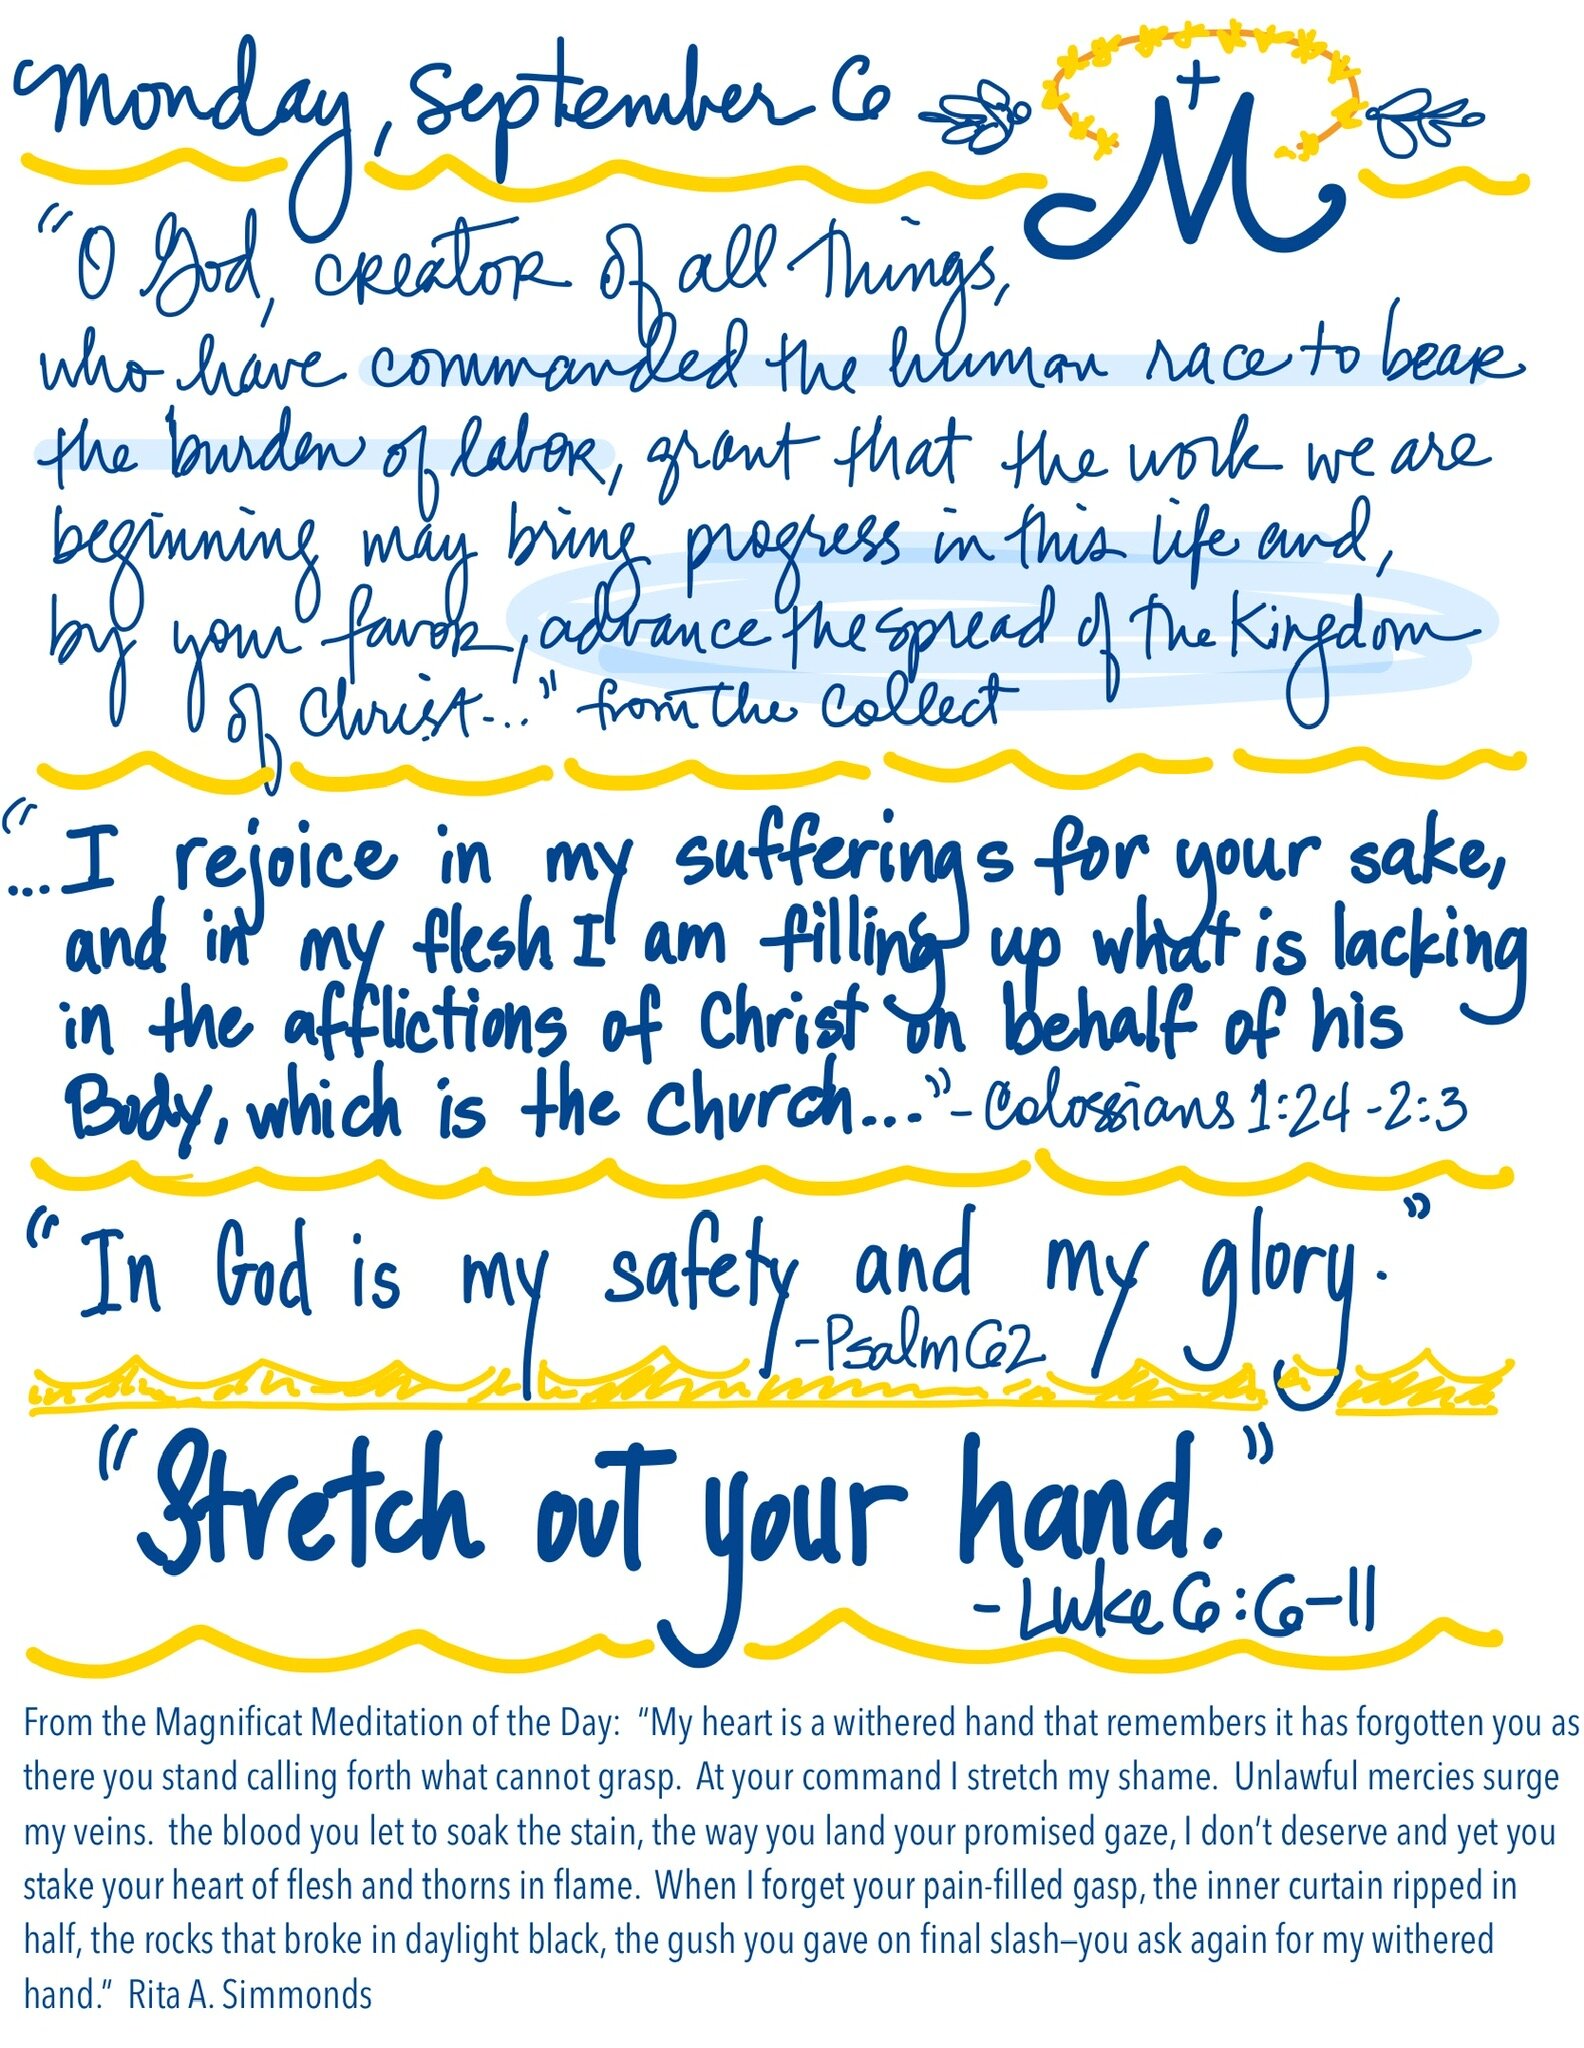 Monday, September 6
M
"O God, creator of all things,
who have commanded the human race to bear
the burden of labor, grant that the work we are
beginning may bring progress in this life and,
by your favor, advance the spread of the Kingdom
of Christ...." from the Collect
"...I rejoice in my sufferings for your sake,
and in my flesh I am filling up what is lacking
in the afflictions of Christ on behalf of his
Body, which is the Church..." - Colossians 1:24-2:3
"In God is my safety and my glory."
-Psalm 62
"Stretch out your hand."
-Luke 6:6-11
From the Magnificat Meditation of the Day:  "My heart is a withered hand that remembers it has forgotten you as
there you stand calling forth what cannot grasp.  At your command I stretch my shame.  Unlawful mercies surge
my veins.  the blood you let to soak the stain, the way you land your promised gaze, I don't deserve and yet you
stake your heart of flesh and thorns in flame.  When I forget your pain-filled gasp, the inner curtain ripped in
half, the rocks that broke in daylight black, the gush you gave on final slash—you ask again for my withered
hand."  Rita A. Simmonds